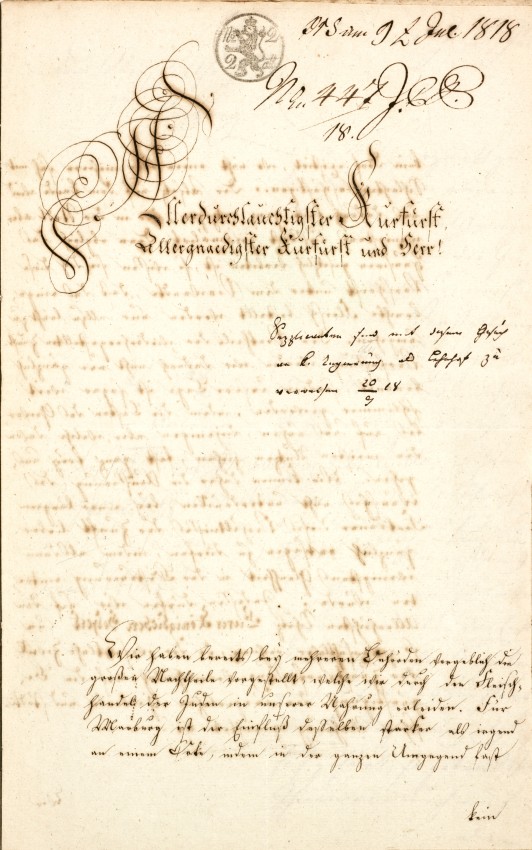 2 2
am 9 Jul. 1818
No. 447
18.
Allerdurchlauchtigster Kurfürst,
Allergnaedigster Kurfürst und Herr!
Supplicanten sind mit diesem Gesuch
an k. Regierung als Lehnhof zu
verweisen 20/9 18
Wir haben bereits bey mehreren Behörden vergeblich die
großen Nachtheile vorgestellt, welche wir durch den Fleisch-
handel der Juden in unserer Nahrung erleiden. Für
Marburg ist der Einfluß desselben stärker als irgend
an einem Orte, indem in der ganzen Umgegend fast
kein